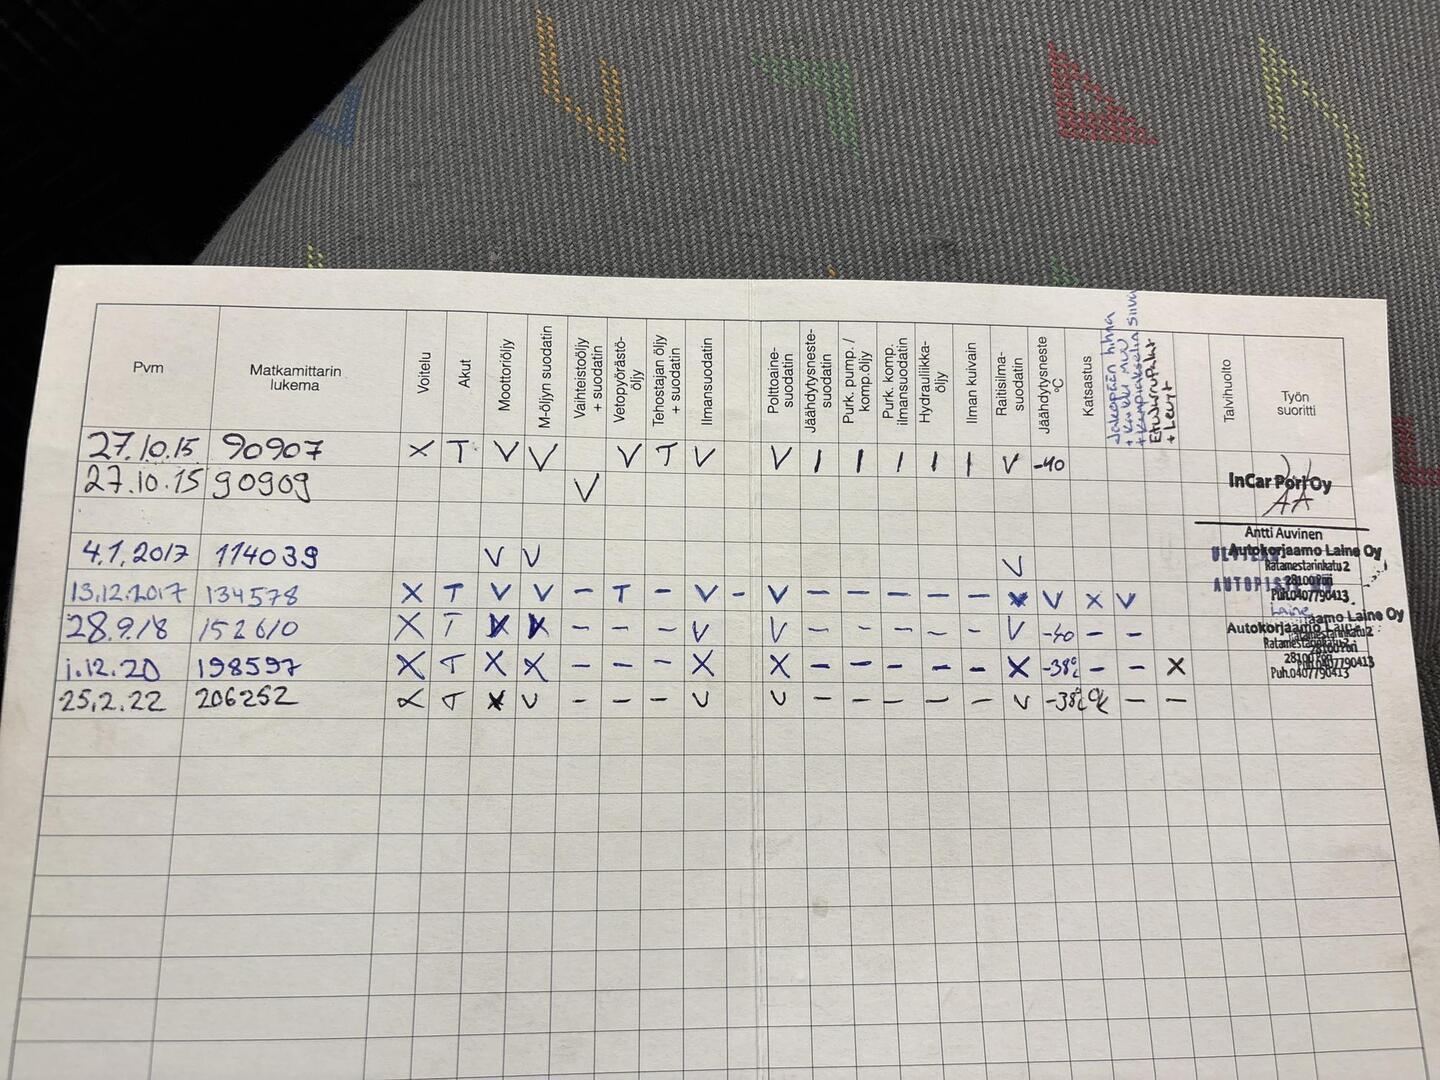 Pvm
Matkamittarin
lukema
Voitelu
Akut
Moottoriöljy
M-öljyn suodatin
Vaihteistoöljy
+ suodatin
Vetopyörästö-
öljy
Tehostajan öljy
+ suodatin
Ilmansuodatin
Polttoaine-
suodatin
Jäähdytysneste-
suodatin
Purk. pump. /
komp.öljy
Purk. komp.
ilmansuodatin
Hydrauliikka-
öljy
Ilman kuivain
Raitisilma-
suodatin
Jäähdytysneste
°C
Katsastus
Jakopään hihna
Etujarrupalat
+ Levyt
Talvihuolto
Työn
suoritti
27.10.15 90907 X T V V V T V V I I I I I V -40
27.10.15 90909 V
InCar Pori Oy
AA
Antti Auvinen
4.1.2017 114039 V V V
Autokorjaamo Laine Oy
Ratamestarinkatu 2
28100 Pori
Puh.0407790413
13.12.2017 134578 X T V V - - T - V - V - - - - - V V X V
Laine
28.9.18 152610 X T V V - - - V V - - - - - V -40 - -
Autokorjaamo Laine Oy
Ratamestarinkatu 2
28100 Pori
Puh.0407790413
1.12.20 198597 X T X X - - - X X - - - - - X -38° - - X
25.2.22 206252 X T X V - - - V V - - - - - V -38° ok - -